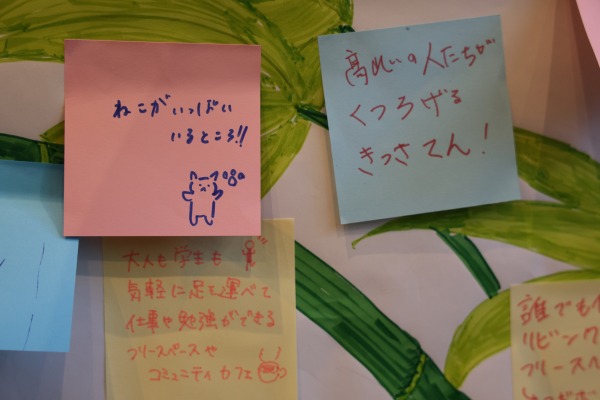 ねこがいっぱい
いるところ!!
高れいの人たちが
くつろげる
きっさてん!
大人も学生も
気軽に足を運べて
仕事や勉強ができる
フリースペースや
コミュニティカフェ
誰でも
リビング
フリース